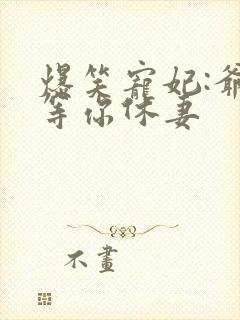 爆笑寵妃:爺
等你休妻
不畫